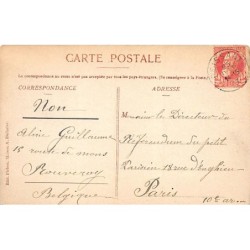 CARTE POSTALE
La correspondance au verso n'est pas acceptée par tous les pays étrangers. (Se renseigner à la Poste.)
CORRESPONDANCE
ADRESSE
Non
Aline Guillaume
15 route de Mons
Rouveroy
Belgique
Monsieur le Directeur du
Référendum du petit
Parisien 18 rue d'Enghien
Paris
10e arr